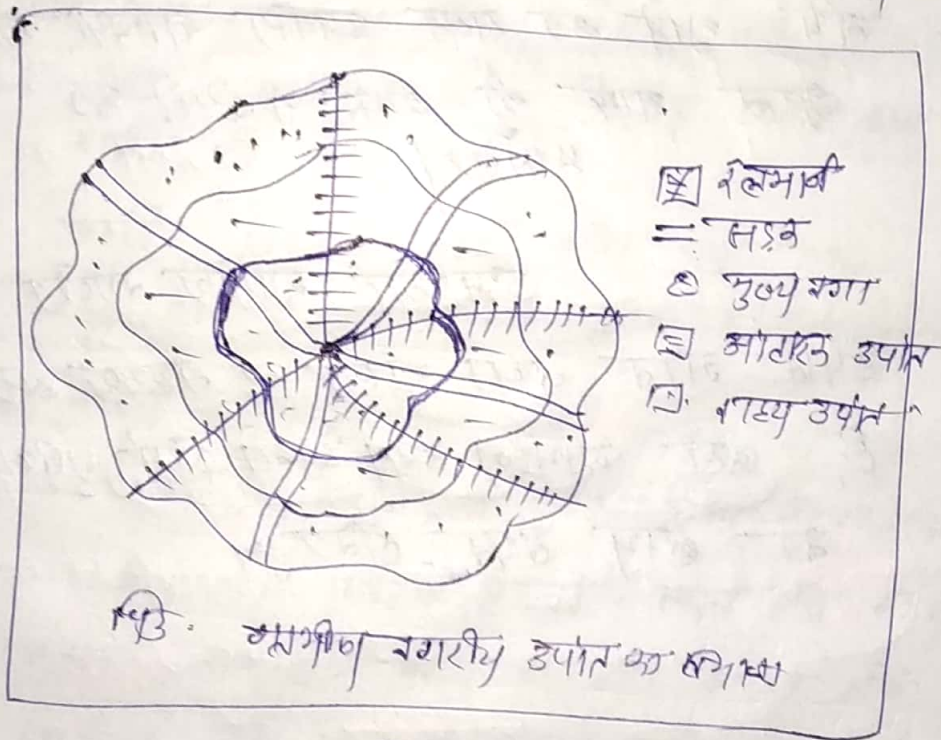 रेलमार्ग
= सड़क
मुख्य नगर
आंतरिक उपांत
बाह्य उपांत
चित्र. ग्रामीण नगरीय उपांत का